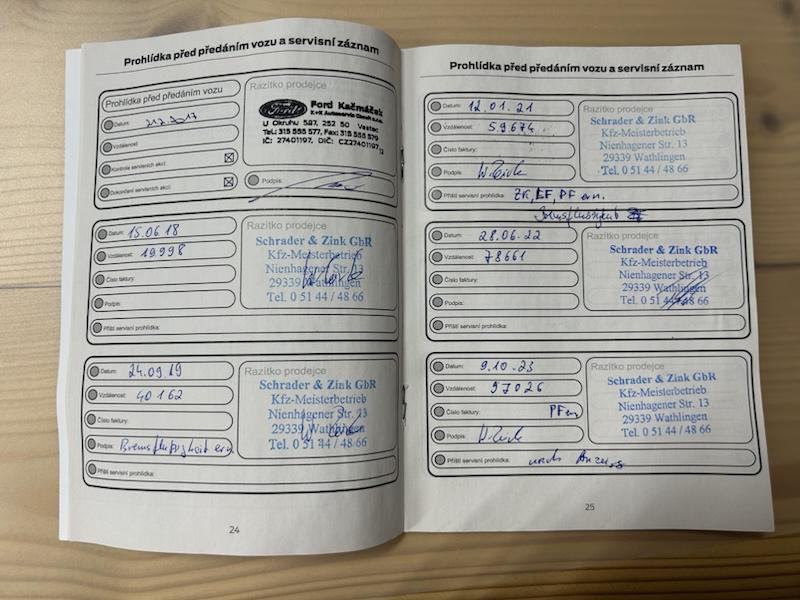 Prohlídka před předáním vozu a servisní záznam
Prohlídka před předáním vozu
Datum: 21.2.2017
Vzdálenost:
Kontrola servisních akcí:
Dokončení servisních akcí:
Razítko prodejce
Ford
Ford Kačmáček
U Okruhu 587, 252 50 Vestec
Tel.: 315 555 577, Fax: 315 555 579
IČ: 27401197, DIČ: CZ27401197
Podpis:
Datum: 15.06.18
Vzdálenost: 19998
Číslo faktury:
Podpis:
Příští servisní prohlídka:
Razítko prodejce
Schrader & Zink GbR
Kfz-Meisterbetrieb
Nienhagener Str. 13
29339 Wathlingen
Tel. 0 51 44 / 48 66
Datum: 24.09.19
Vzdálenost: 40162
Číslo faktury:
Podpis: Bremsflüssigkeit ern.
Příští servisní prohlídka:
Razítko prodejce
Schrader & Zink GbR
Kfz-Meisterbetrieb
Nienhagener Str. 13
29339 Wathlingen
Tel. 0 51 44 / 48 66
24
Prohlídka před předáním vozu a servisní záznam
Datum: 12.01.21
Vzdálenost: 59674
Číslo faktury:
Podpis:
Příští servisní prohlídka: ZR, LF, PF ern.
Bremsflüssigkeit
Schrader & Zink GbR
Kfz-Meisterbetrieb
Nienhagener Str. 13
29339 Wathlingen
Tel. 0 51 44 / 48 66
Datum: 28.06.22
Vzdálenost: 78661
Číslo faktury:
Podpis:
Příští servisní prohlídka:
Schrader & Zink GbR
Kfz-Meisterbetrieb
Nienhagener Str. 13
29339 Wathlingen
Tel. 0 51 44 / 48 66
Datum: 9.10.23
Vzdálenost: 97026
Číslo faktury: PF ern
Podpis:
Příští servisní prohlídka: nach Anzeige
Schrader & Zink GbR
Kfz-Meisterbetrieb
Nienhagener Str. 13
29339 Wathlingen
Tel. 0 51 44 / 48 66
25